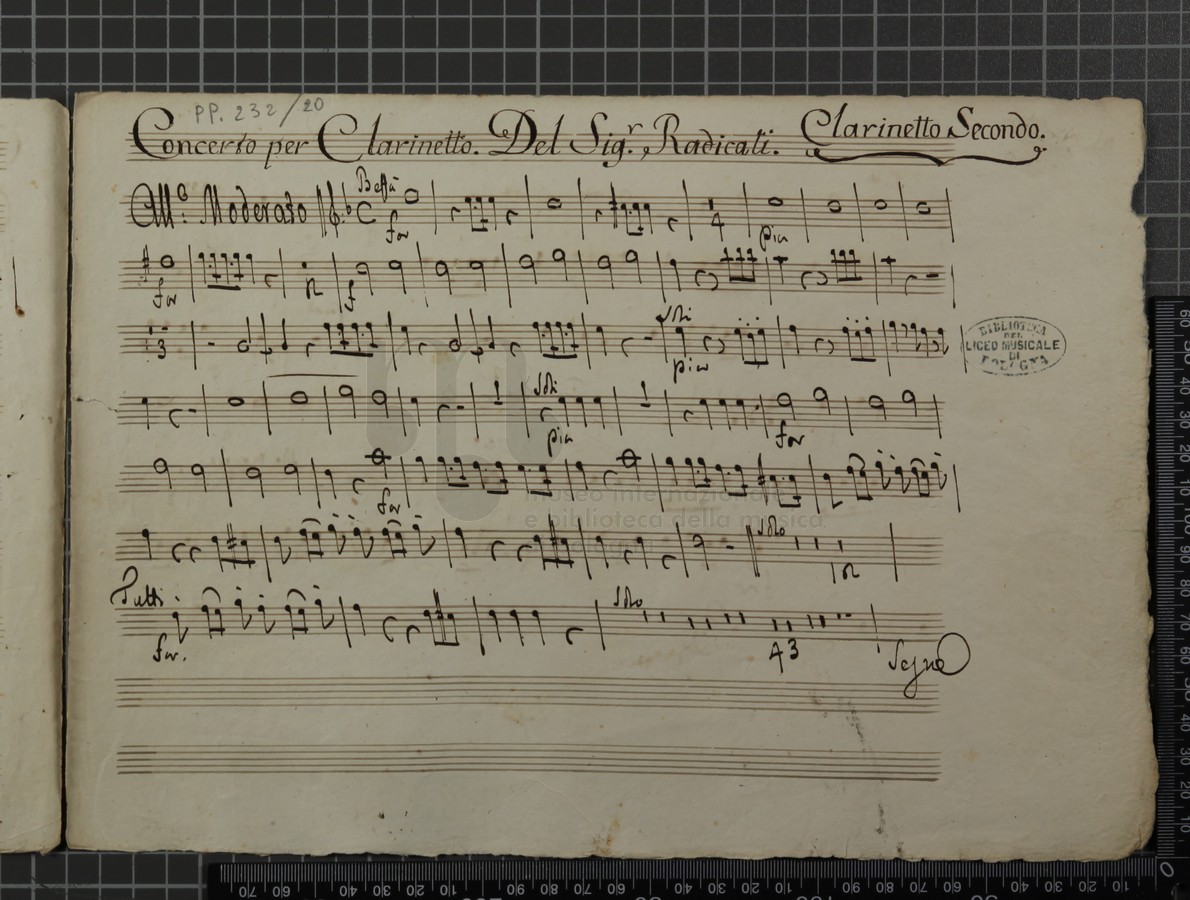 PP. 232/20
Concerto per Clarinetto. Del Sig.r Radicati. Clarinetto Secondo.
All.o Moderato
C for
4 pia
for f
3 Soli
pia
BIBLIOTECA
DEL
LICEO MUSICALE
DI
BOLOGNA
Soli
pia for
for
museo internazionale
e biblioteca della musica
Solo
12
Tutti Solo
for. 43 Segue